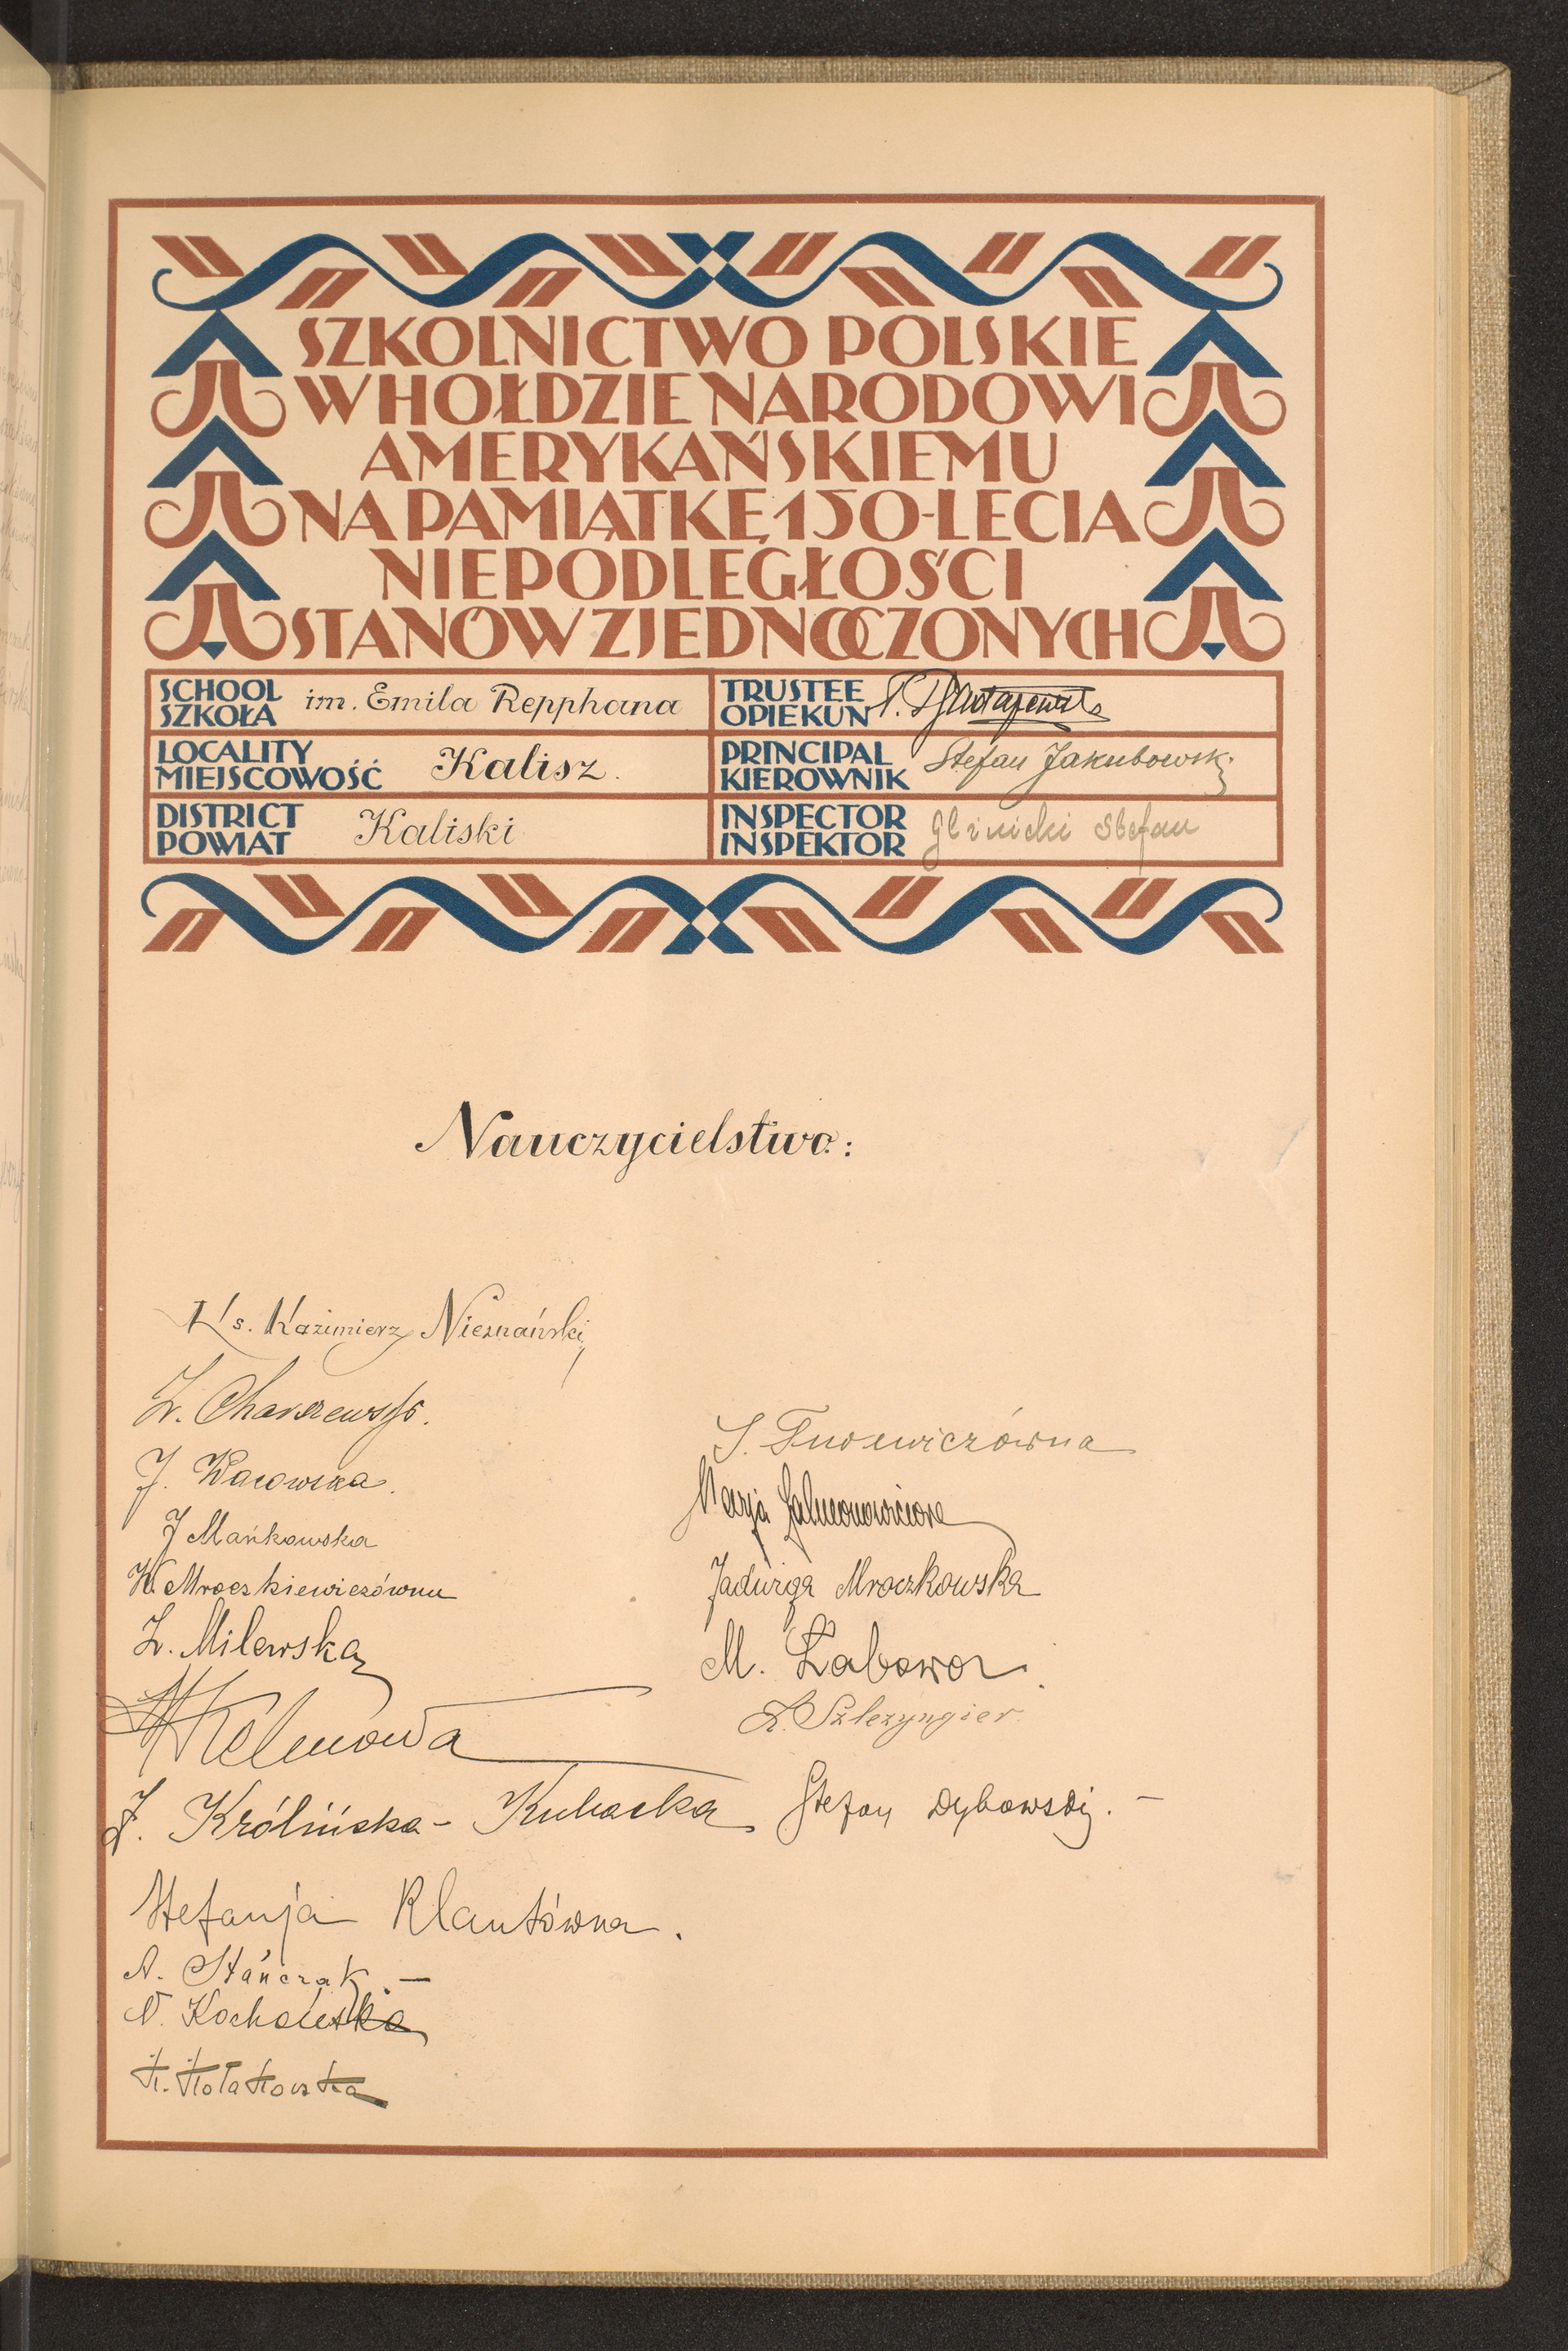 SZKOLNICTWO POLSKIE
W HOŁDZIE NARODOWI
AMERYKAŃSKIEMU
NA PAMIĄTKĘ 150-LECIA
NIEPODLEGŁOŚCI
STANÓW ZJEDNOCZONYCH
SCHOOL
SZKOŁA im. Emila Repphana
TRUSTEE
OPIEKUN
LOCALITY
MIEJSCOWOŚĆ Kalisz.
PRINCIPAL
KIEROWNIK Stefan Jakubowski
DISTRICT
POWIAT Kaliski
INSPECTOR
INSPEKTOR Glinicki Stefan
Nauczycielstwo:
Ks. Kazimierz Nieznański
Z.
J.
J Mańkowska
K. Mroczkiewiczówna
Z. Milewska
Kelmowa
J. Królińska - Kubacka
Stefanja Klantówna.
A. Stańczak. —
N.
K. Kołakowska
S.
Marja
Jadwiga Mroczkowska
M. Łabowa.
Szlezyngier.
Stefan Dybowski. —